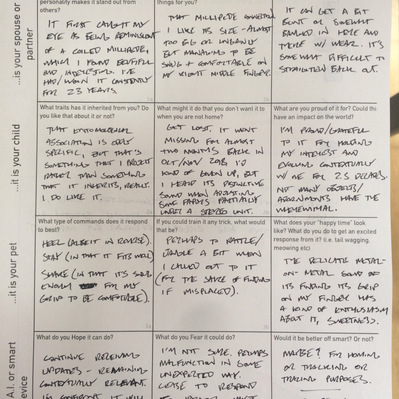 personality makes it stand out from
others?
things for you?
...is your spouse or
partner
IT FIRST CAUGHT MY
EYE AS BEING REMINISCENT
OF A COILED MILLIPEDE,
WHICH I FOUND BEAUTIFUL
AND INTERESTING. I'VE
HAD/WORN IT CONSTANTLY
FOR 23 YEARS
THAT MILLIPEDE
I LIKE ITS SIZE - ALMOST
TOO BIG OR UNGAINLY
BUT MANAGING TO BE
SOLID + COMFORTABLE ON
MY RIGHT MIDDLE FINGER.
IT CAN GET A BIT
BENT OR SOMEWHAT
IN HERE AND
THERE W/ WEAR. IT'S
SOMEWHAT DIFFICULT TO
STRAIGHTEN BACK OUT.
...it is your child
What traits has it inherited from you? Do
you like that about it or not?
THAT ENTOMOLOGICAL
ASSOCIATION IS QUITE
SPECIFIC, BUT THAT'S
SOMETHING THAT I PROJECT
RATHER THAN SOMETHING
THAT IT INHERITS, REALLY.
I DO LIKE IT.
What might it do that you don't want to
when you are not home?
GET LOST. IT WENT
MISSING FOR ALMOST
TWO MONTHS BACK IN
OCT/NOV 2018. I'D
KIND OF GIVEN UP, BUT
I HEARD ITS DISTINCTIVE
SOUND WHEN ADJUSTING
SOME PAPERS PARTIALLY
UNDER A STEREO UNIT.
What are you proud of it for? Could thi
have an impact on the world?
I'M PROUD/GRATEFUL
TO IT FOR HOLDING
MY INTEREST AND
EVOLVING CONTEXTUALLY
W/ ME FOR 23 YEARS.
NOT MANY OBJECTS/
ADORNMENTS HAVE THE
...it is your pet
What type of commands does it respond
to best?
HEEL (ALBEIT IN REVERSE).
STAY (IN THAT IT FITS WELL)
SHAKE (IN THAT IT'S SOLID
ENOUGH FOR MY
GRIP TO BE COMFORTABLE).
If you could train it any trick, what would
that be?
PERHAPS TO RATTLE/
JANGLE A BIT WHEN
I CALLED OUT TO IT
(FOR THE SAKE OF FINDING
IF MISPLACED).
What does your "happy time" look
like? What do you do to get an excited
response from it? (i.e. tail wagging,
meowing etc)
THE DELICATE METAL-
ON-METAL SOUND OF
ITS FINDING ITS GRIP
ON MY FINGER HAS
A KIND OF ENTHUSIASM
ABOUT IT, SWEETNESS.
A.I. or smart
evice
What do you Hope it can do?
CONTINUE RECEIVING
UPDATES - REMAINING
CONTEXTUALLY RELEVANT.
I'M CONFIDENT IT WILL
What do you Fear it could do?
I'M NOT SURE. PERHAPS
MALFUNCTION IN SOME
UNEXPECTED WAY.
CEASE TO RESPOND
Would it be better off smart? Or not?
MAYBE? FOR HOMING
OR TRACKING OR
TRACING PURPOSES.